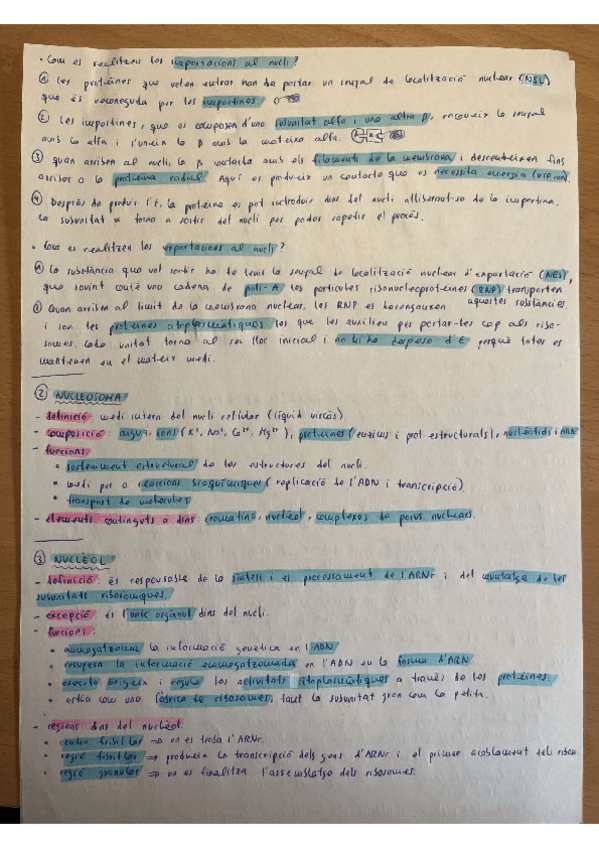 • Com es realitzen les importacions al nucli?
① Les proteïnes que volen entrar han de portar un senyal de localització nuclear (NSL)
que és reconeguda per les importines.
② Les importines, que es composen d'una subunitat alfa i una altra β, reconeix la senyal
amb la alfa i s'uneix la β amb la mateixa alfa.
③ Quan arriben al nucli, la β contacta amb els filaments de la membrana i descendeixen fins
arribar a la proteïna radial. Aquí es produeix un contacte que es necessita energia
④ Després de produir l'E, la proteïna es pot introduir dins del nucli alliberant-se de la importina.
La subunitat α torna a sortir del nucli per poder repetir el procés.
• Com es realitzen les exportacions al nucli?
① La substància que vol sortir ha de tenir la senyal de localització nuclear d'exportació (NES),
que sovint conté una cadena de poli-A. Les partícules ribonucleoproteines (RNP) transporten
aquestes substàncies.
② Quan arriben al límit de la membrana nuclear, les RNP es
i son les proteïnes citoplasmàtiques les que les auxilien per portar-les cap als ribo-
somes. Cada unitat torna al seu lloc inicial i no hi ha despesa d'E perquè totes es
mantenen en el mateix medi.
② NUCLEOSOMA
- definició: medi intern del nucli cel·lular (líquid viscós)
- composició: aigua, ions (K⁺, Na⁺, Ca²⁺, Mg²⁺), proteïnes (enzims i prot. estructurals), nucleòtids i ARN
- funcions:
• sosteniment estructural de les estructures del nucli.
• medi per a reaccions bioquímiques (replicació de l'ADN i transcripció).
• transport de molècules
- elements continguts a dins: cromatina, nuclèol, complexos de porus nuclears.
③ NUCLÈOL
- definició: és responsable de la síntesi i el processament de l'ARNr i del muntatge de les
subunitats ribosòmiques.
- excepció: és l'únic orgànul dins del nucli.
- funcions:
• emmagatzema la informació genètica en l'ADN
• recupera la informació emmagatzemada en l'ADN en la forma d'ARN
• executa, dirigeix i regula les activitats citoplasmàtiques a través de les proteïnes.
• actua com una fàbrica de ribosomes, tant la subunitat gran com la petita.
- regions dins del nuclèol
• centre fibril·lar ⇒ on es troba l'ARNr.
• regió fibril·lar ⇒ produeix la transcripció dels gens d'ARNr i el primer acoblament del ribos.
• regió granular ⇒ on es finalitza l'assemblatge dels ribosomes.